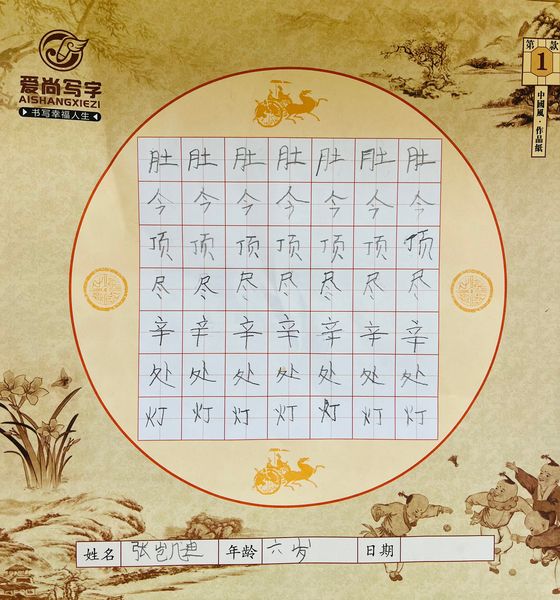 爱尚写字
AISHANGXIEZI
书写幸福人生
第1款
中國風·作品紙
肚肚肚肚肚肚肚
今今今今今今今
顶顶顶顶顶顶顶
尽尽尽尽尽尽尽
辛辛辛辛辛辛辛
处处处处处处处
灯灯灯灯灯灯灯
姓名 张岂 年龄 六岁 日期